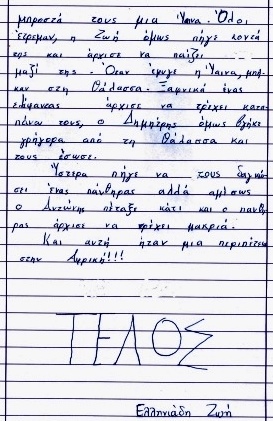 μπροστά τους μια ύαινα. Όλοι
έτρεμαν, η Ζωή όμως πήγε κοντά
της και άρχισε να παίζει
μαζί της. Όταν έφυγε η ύαινα, μπή-
καν στη θάλασσα. Ξαφνικά ένας
άρχισε να τρέχει κατα-
πάνω τους, ο Δημήτρης όμως βγήκε
γρήγορα από τη θάλασσα και
τους έσωσε.
Ύστερα πήγε να τους δαγκώ-
σει ένας πάνθηρας αλλά αμέσως
ο Αντώνης πέταξε κάτι και ο πανθη-
ρας άρχισε να τρέχει μακριά.
Και αυτή ήταν μια περιπέτεια
στην Αφρική!!!
ΤΕΛΟΣ
Ελληνιάδη Ζωή